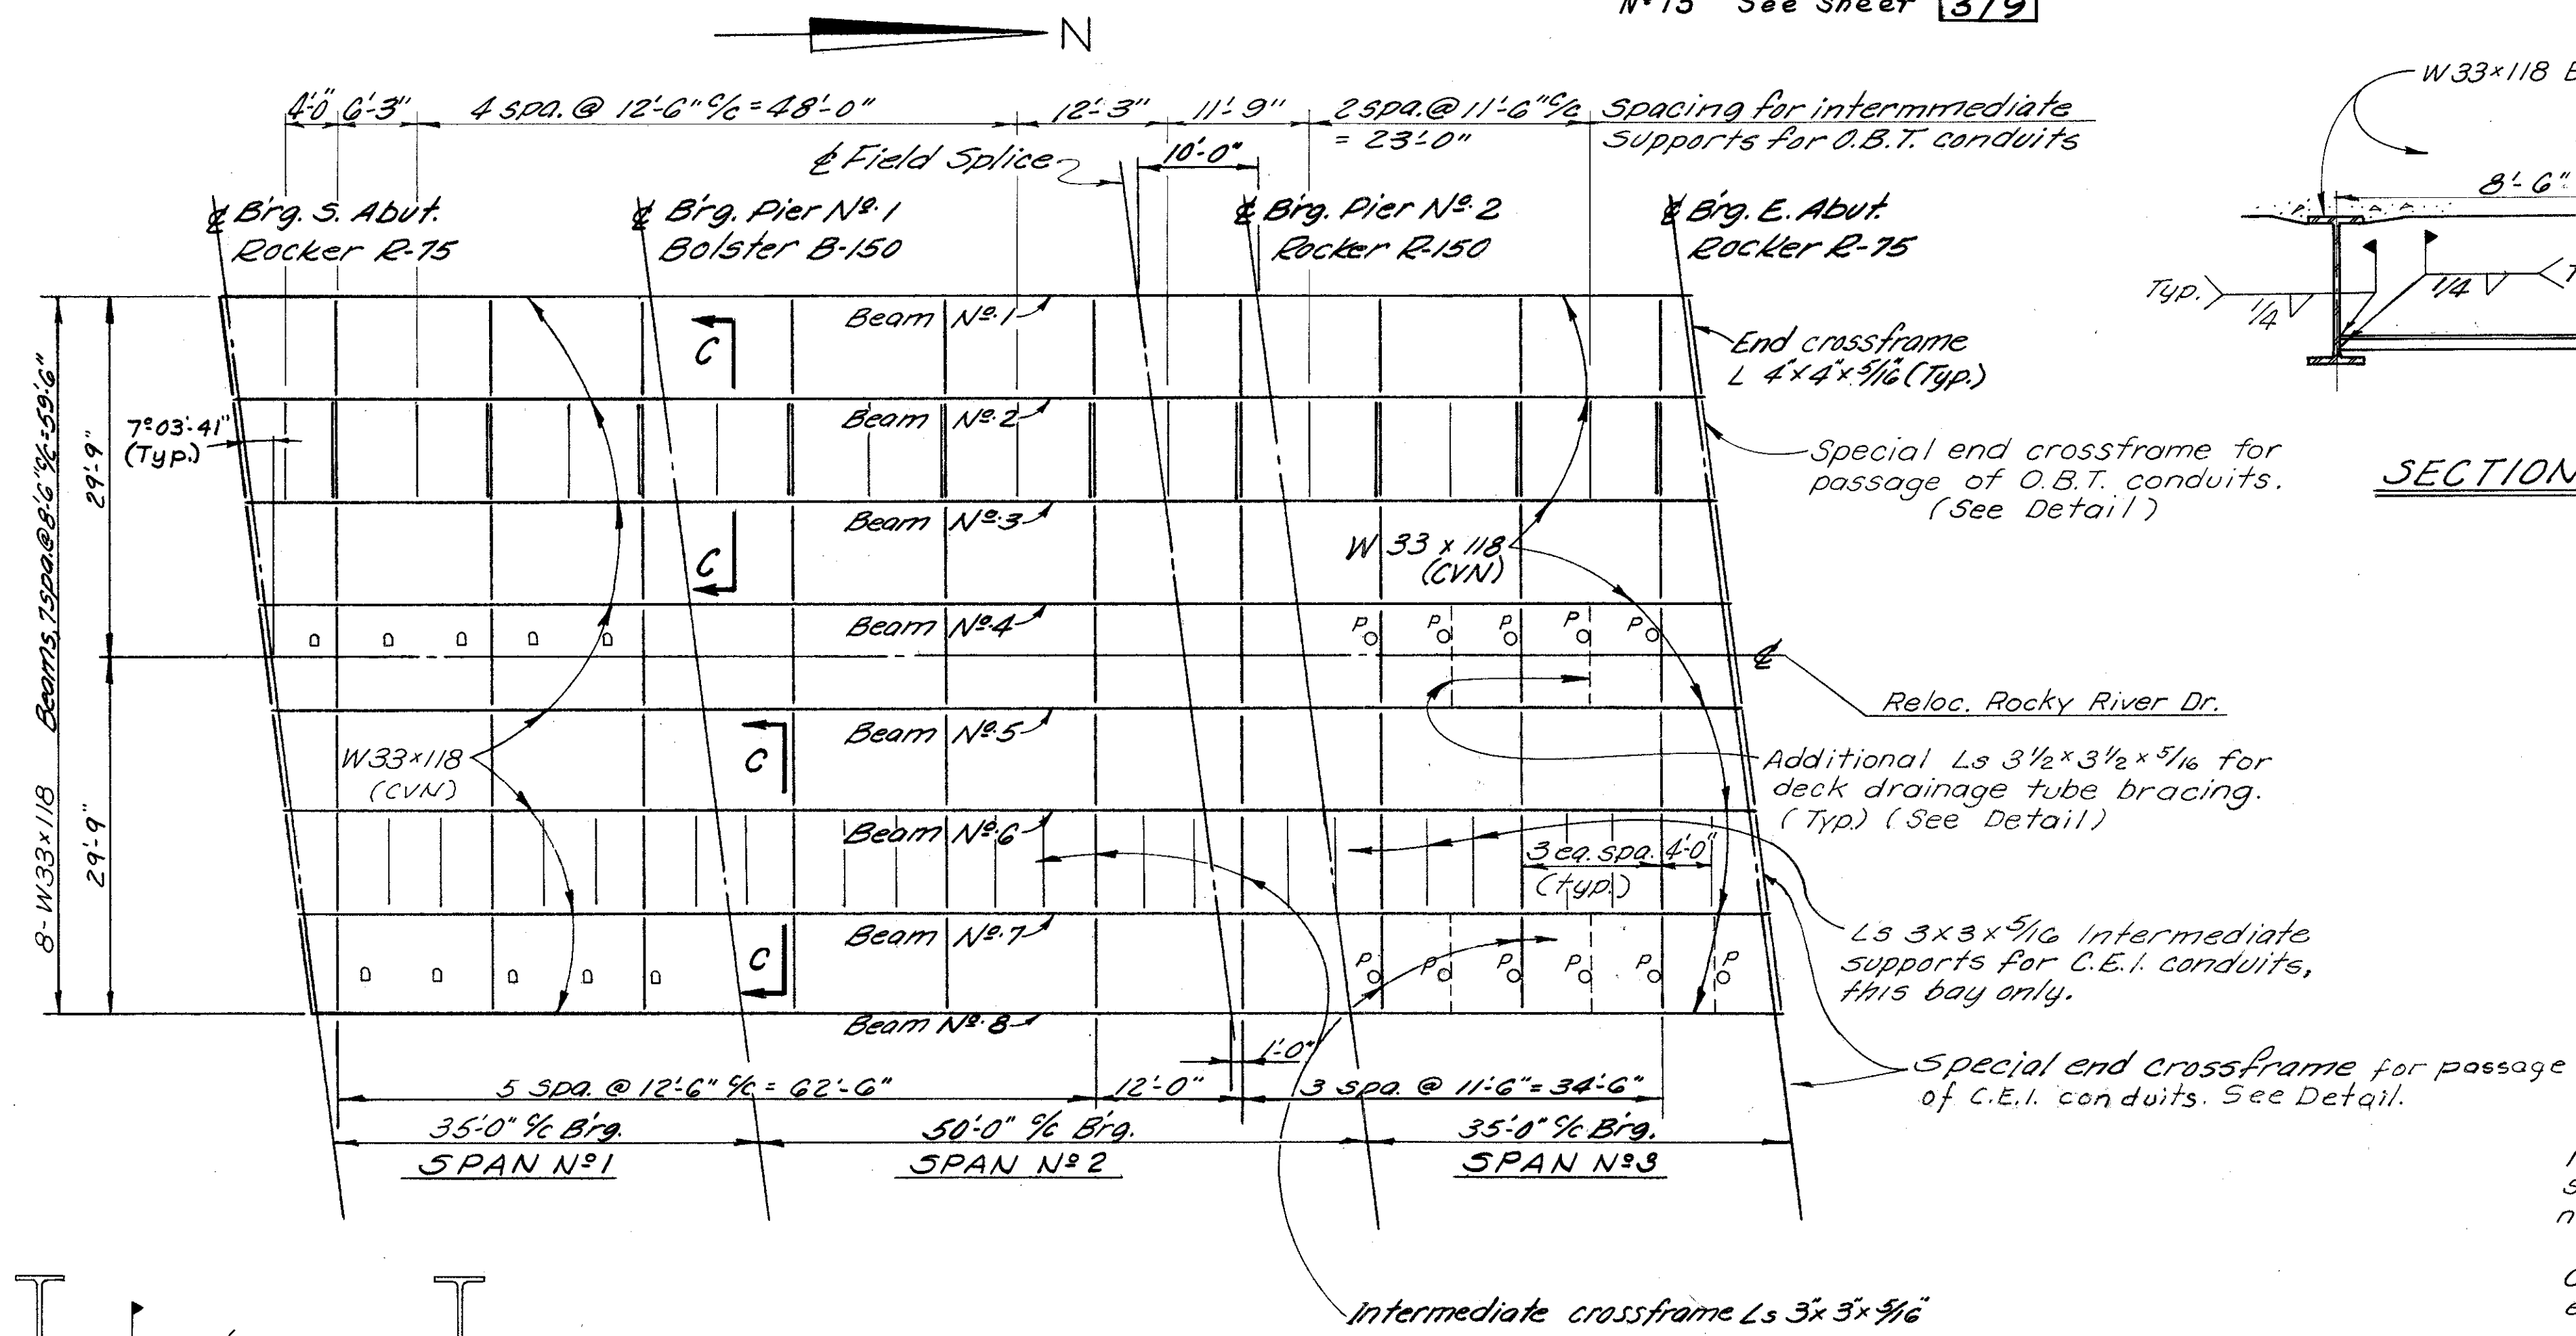 Nº 15 See Sheet 3/9
N
4'-0" 6'-3" 4 spa. @ 12'-6" c/c = 48'-0" 12'-3" 11'-9" 2 spa. @ 11'-6" c/c = 23'-0"
Spacing for intermmediate
Supports for O.B.T. conduits
℄ Field Splice
10'-0"
℄ Br'g. S. Abut.
Rocker R-75
℄ Br'g. Pier Nº 1
Bolster B-150
℄ Br'g. Pier Nº 2
Rocker R-150
℄ Br'g. E. Abut.
Rocker R-75
W 33×118
8'-6"
Typ.
1/4
1/4
SECTION
8-W33×118 Beams, 7 spa @ 8'-6" c/c = 59'-6"
29'-9"
29'-9"
7°03'-41"
(Typ.)
Beam Nº 1
Beam Nº 2
Beam Nº 3
Beam Nº 4
Beam Nº 5
Beam Nº 6
Beam Nº 7
Beam Nº 8
C
C
C
C
End crossframe
L 4"×4"×5/16" (Typ.)
Special end crossframe for
passage of O.B.T. conduits.
(See Detail)
W 33 × 118
(CVN)
W33×118
(CVN)
P P P P P
℄
Reloc. Rocky River Dr.
Additional Ls 3 1/2 × 3 1/2 × 5/16 for
deck drainage tube bracing.
(Typ.) (See Detail)
3 eq. spa. 4'-0"
(typ.)
P P P P P P
Ls 3×3×5/16 Intermediate
supports for C.E.I. conduits,
this bay only.
1'-0"
5 spa. @ 12'-6" c/c = 62'-6" 12'-0" 3 spa. @ 11'-6" = 34'-6"
Special end crossframe for passage
of C.E.I. conduits. See Detail.
35'-0" c/c Br'g. 50'-0" c/c Br'g. 35'-0" c/c Br'g.
SPAN Nº 1 SPAN Nº 2 SPAN Nº 3
Intermediate crossframe Ls 3"×3"×5/16"